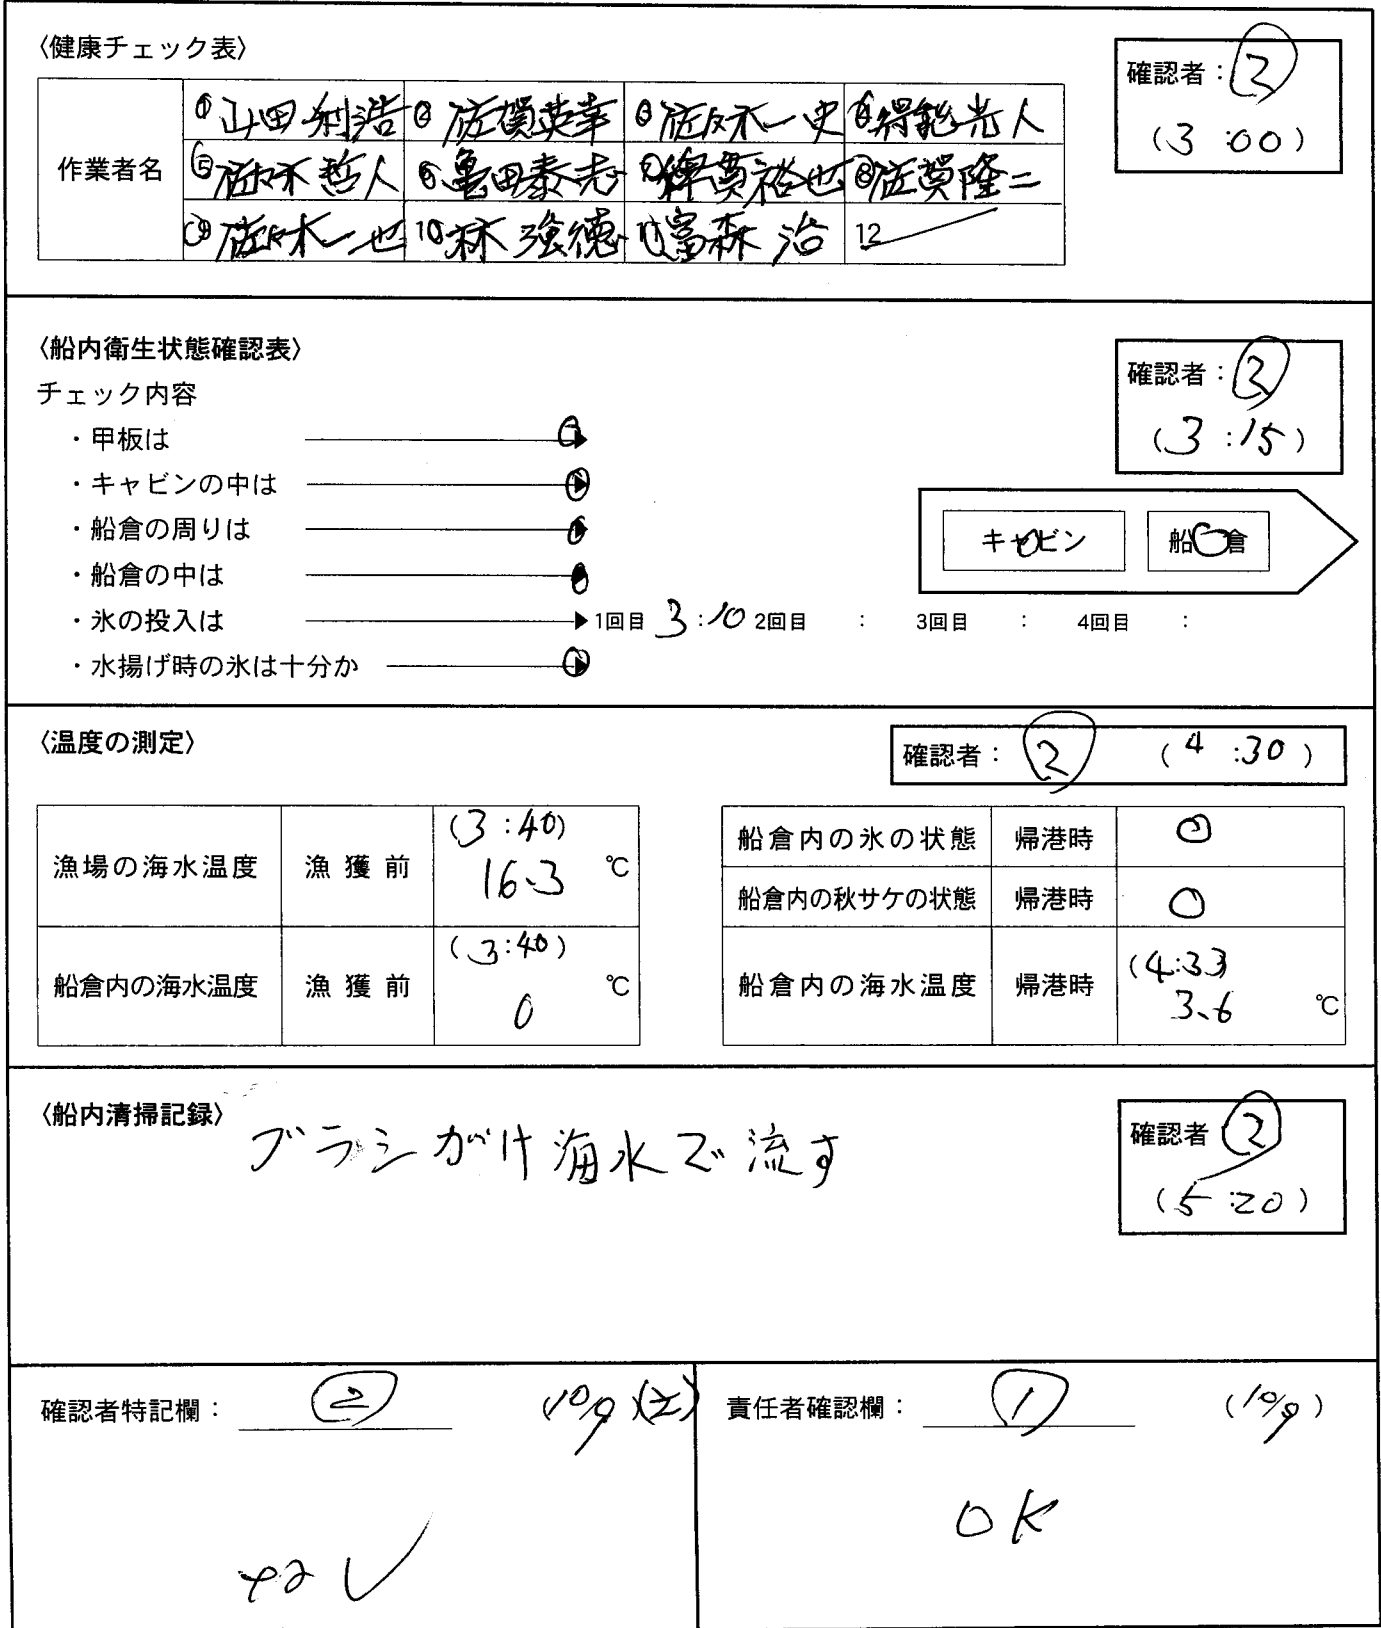 〈健康チェック表〉
確認者：②
(3:00)
作業者名
①山田利浩 ②佐賀英幸 ③佐々木一史 ④得能光人
⑤佐々木哲人 ⑥亀田泰志 ⑦稗貫裕也 ⑧佐賀隆二
⑨佐々木一也 10林強徳 11富森治 12
〈船内衛生状態確認表〉
確認者：②
(3:15)
チェック内容
・甲板は ○
・キャビンの中は ○
・船倉の周りは ○
・船倉の中は ○
キャビン ○ 船倉 ○
・氷の投入は 1回目 3:10 2回目 : 3回目 : 4回目 :
・水揚げ時の氷は十分か ○
〈温度の測定〉
確認者：② (4:30)
漁場の海水温度 漁獲前 (3:40) 16.3 ℃
船倉内の海水温度 漁獲前 (3:40) 0 ℃
船倉内の氷の状態 帰港時 ○
船倉内の秋サケの状態 帰港時 ○
船倉内の海水温度 帰港時 (4:33) 3.6 ℃
〈船内清掃記録〉
ブラシがけ海水で流す
確認者②
(5:20)
確認者特記欄：② (10/9)(土)
なし
責任者確認欄：① (10/9)
OK